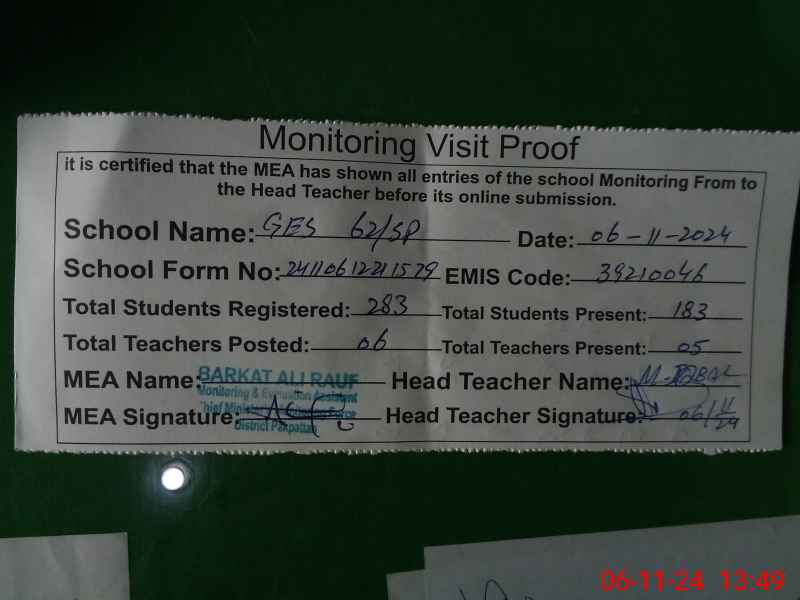 Monitoring Visit Proof
it is certified that the MEA has shown all entries of the school Monitoring From to
the Head Teacher before its online submission.
School Name: GES 62/SP Date: 06-11-2024
School Form No: 241106122115 79 EMIS Code: 39210046
Total Students Registered: 283 Total Students Present: 183
Total Teachers Posted: 06 Total Teachers Present: 05
MEA Name: BARKAT ALI RAUF Head Teacher Name: M. IQBAL
Monitoring & Evaluation Assistant
Chief Minister's Force
MEA Signature: Head Teacher Signature: 06/11/24
District Pakpattan
06-11-24 13:49